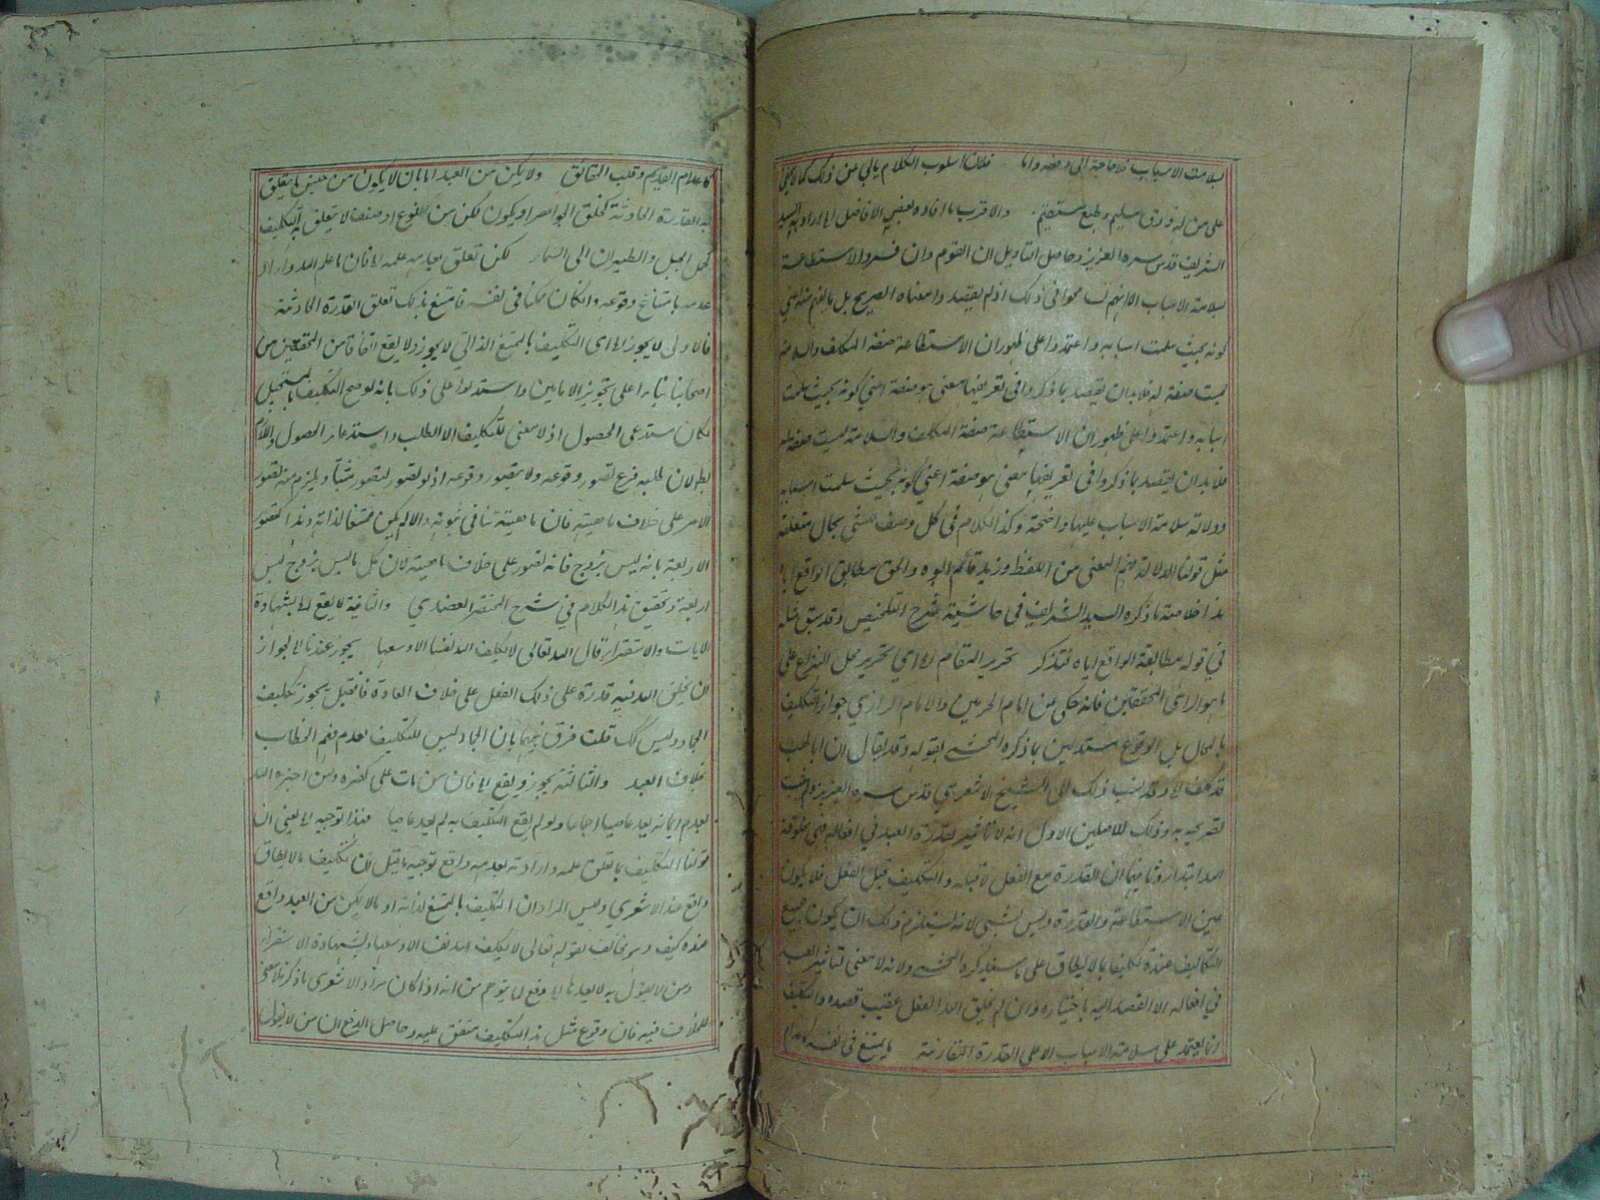 لسلامت الاسباب فلا حاجة الى دفعه واما فلان اسلوب الكلام يابى عن ذلك كما لا يخفى
على من له ذوق سليم وطبع مستقيم والاقرب ما افاده بعض الافاضل اه اراد به السيد
الشريف قدس سره العزيز وحاصل التاويل ان القوم وان فسروا الاستطاعة
بسلامة الاسباب الا انهم تسامحوا في ذلك اذ لم يقصدوا معناه الصريح بل ما يفهم منه اعني
كونه بحيث سلمت اسبابه واعتمدوا على ظهور ان الاستطاعة صفة المكلف والسلامة
ليست صفة له فلا بد ان يقصد بما ذكروا في تعريفها معنى هو صفة اعني كونه بحيث سلمت
اسبابه واعتمدوا على ظهور ان الاستطاعة صفة المكلف والسلامة ليست صفة له
فلا بد ان يقصد بما ذكروا في تعريفها معنى هو صفة اعني كونه بحيث سلمت اسبابه
ودلالة سلامة الاسباب عليها واضحة وكذا الكلام في كل وصف الشئ بحال متعلقه
مثل قولنا الدلالة فهم المعنى من اللفظ وزيد قائم ابوه والحق مطابق الواقع اياه
هذا خلاصة ما ذكره السيد الشريف في حاشية شرح التلخيص وقد سبق مثله
في قوله مطابقة الواقع اياه فتذكر تحرير المقام اه اي تحرير محل النزاع على
ما هو الراى المحققين فانه حكى عن امام الحرمين والامام الرازي جواز التكليف
بالمحال بل الوقوع مستدلين بما ذكره المحشى بقوله وقد يقال ان ابا لهب
قد كلف اه وقد نسب ذلك الى الشيخ الاشعري قدس سره العزيز ولم يثبت
تصريحه به وذلك للاصلين الاول انه لا تاثير لقدرة العبد في افعاله فهي مخلوقة
الله ابتداء وثانيهما ان القدرة مع الفعل لا قبله والتكليف قبل الفعل فلا يكون
حين الاستطاعة والقدرة وليس بشئ لانه يستلزم ذلك ان يكون جميع
التكاليف عنده تكليفا بما لا يطاق على ما سيذكره المحشى ولانه لا معنى لتاثير العبد
في افعاله الا القصد اليه باختياره وان لم يخلق الله الفعل عقيب قصده والتكليف
انما يعتمد على سلامة الاسباب لا على القدرة المقارنة ما يمتنع في نفسه
كاعدام القديم وقلب الحقائق ولا يمكن من العبد اما بان لا يكون من جنس ما يتعلق
به القدرة الحادثة كخلق الجواهر او يكون لكن من نوع او صنف لا يتعلق به التكليف
كحمل الجبل والطيران الى السماء لكن تعلق بعدمه علمه اه فان ما علم الله واراد
عدمه بامتناع وقوعه وان كان ممكنا في نفسه فامتنع بذلك تعلق القدرة الحادثة
فالاولى لا يجوز اه اى التكليف بالممتنع الذاتي لا يجوز ولا يقع اتفاقا من المحققين من
اصحابنا بناء على تجويز الامامين واستدلوا على ذلك بانه لو صح التكليف بالمستحيل
لكان مستدعى الحصول اذ لا معنى للتكليف الا الطلب واستدعاء الحصول واللازم
باطل لان طلبه فرع تصور وقوعه ولا يتصور وقوعه اذ لو تصور لتصور مثبتا ويلزم منه تصور
الامر على خلاف ماهيته فان ماهيته تنافي ثبوته والا لم يكن ممتنعا لذاته وهذا كتصور
الاربعة بانه ليس بزوج فانه تصور على خلاف ماهيته لان كل ما ليس بزوج ليس
اربعة وتحقيق هذا الكلام في شرح المختصر العضدي والثانية لا يقع اه بشهادة
الايات والاستقراء قال الله تعالى لا يكلف الله نفسا الا وسعها يجوز عندنا اه لجواز
ان يخلق الله فيه قدرة على ذلك الفعل على خلاف العادة فان قيل يجوز تكليف
الجماد وليس كك قلت فرق بينهما بان الجماد ليس للتكليف لعدم فهم الخطاب
بخلاف العبد والثالثة يجوز ويقع اه فان من مات على كفره ومن اخبره الله
بعدم ايمانه يعد عاصيا اجماعا ولو لم يقع التكليف به لم يعد عاصيا فهذا توجيه اه يعني ان
قولنا التكليف بما تعلق علمه وارادته بعدمه واقع توجيه ما قيل ان تكليف ما لا يطاق
واقع عند الاشعري وليس المراد ان التكليف بالممتنع لذاته او ما لا يمكن من العبد واقع
عنده كيف وهو مخالف لقوله تعالى لا يكلف الله نفسا الا وسعها وبشهادة الاستقراء
ومن لا يقول به لا يعد ها اه دفع لما يتوهم من انه اذا كان مراد الاشعري ما ذكر فلا معنى
للخلاف فيه فان وقوع مثل هذا التكليف متفق عليه وحاصل الدفع ان من لا يقول